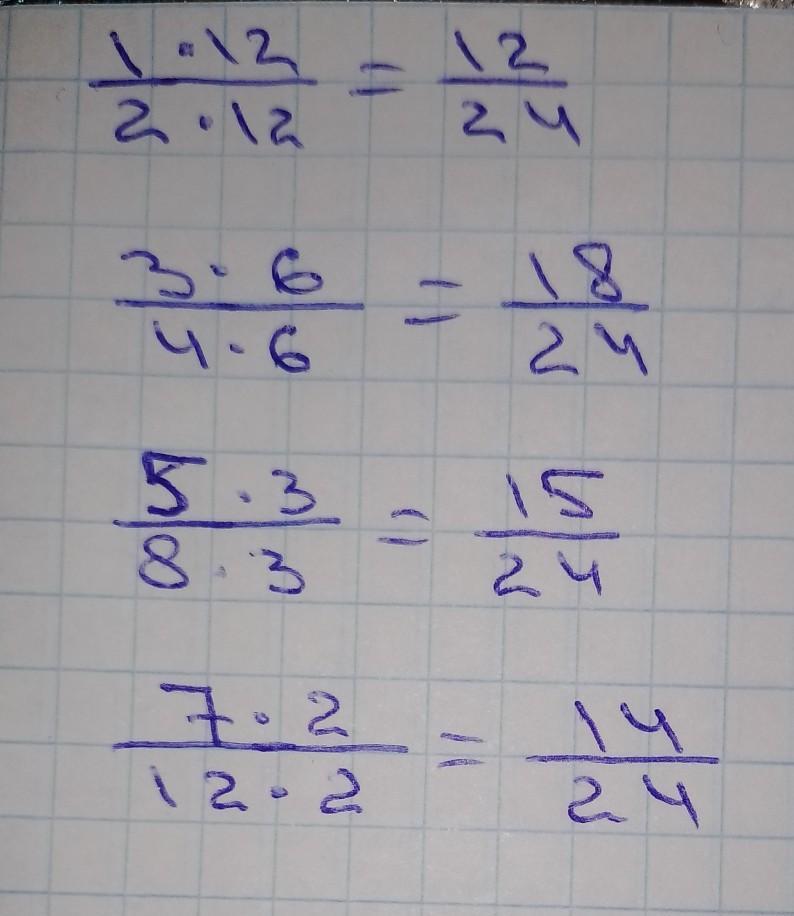 1 · 12 / 2 · 12 = 12 / 24
3 · 6 / 4 · 6 = 18 / 24
5 · 3 / 8 · 3 = 15 / 24
7 · 2 / 12 · 2 = 14 / 24